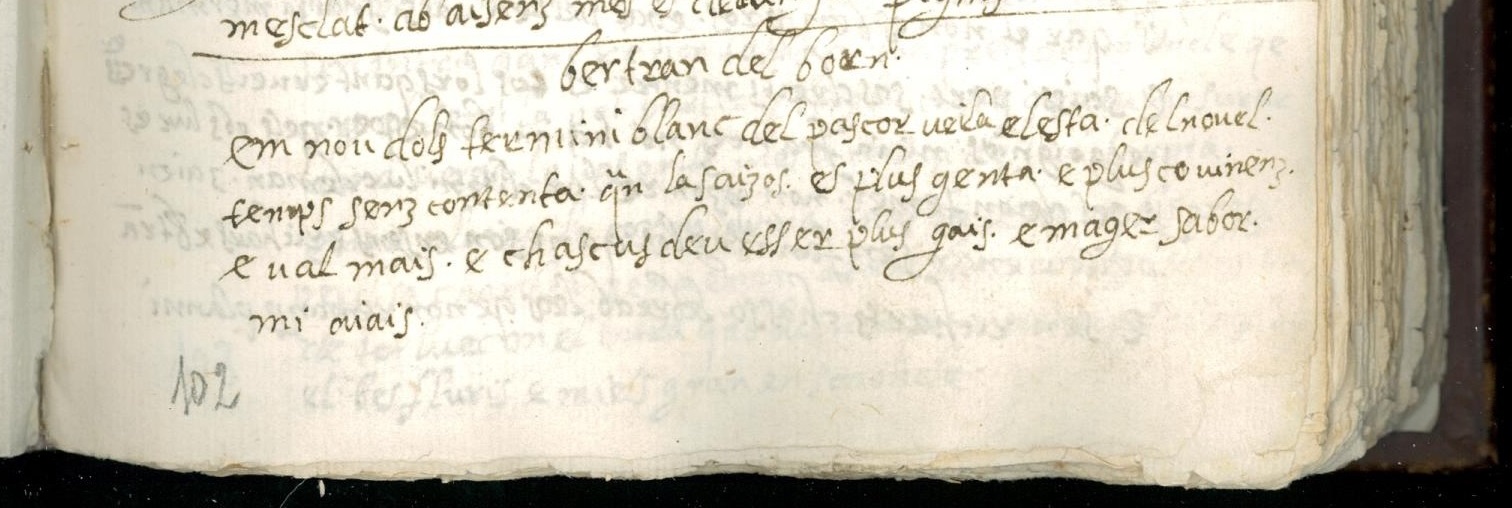 mesclat. ab aisenz mes e
bertran del born.
em nou dols termini blanc del pascor vei la elesta. del novel.
temps senz contenta. qan la saizos. es plus genta. e plus covinenz.
e val mais. e chascus deu esser plus gais. e mager sabor.
mi aiais.
102